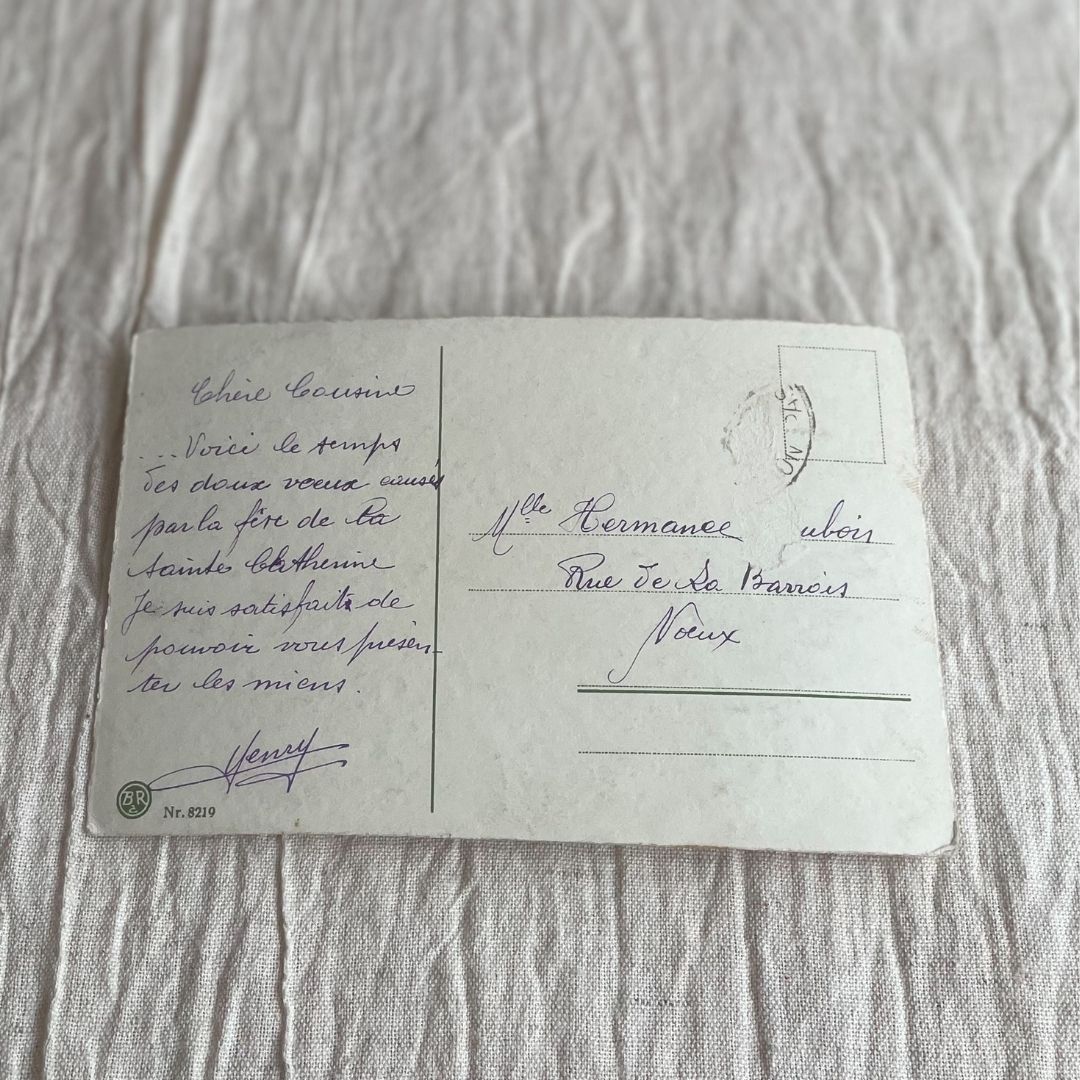 Chère Cousine
...Voici le temps
des doux vœux causés
par la fête de la
sainte Catherine
Je suis satisfaits de
pouvoir vous présen-
ter les miens.
Henry
BR
Nr. 8219
Mlle Hermance ubois
Rue de La Barrois
Nœux